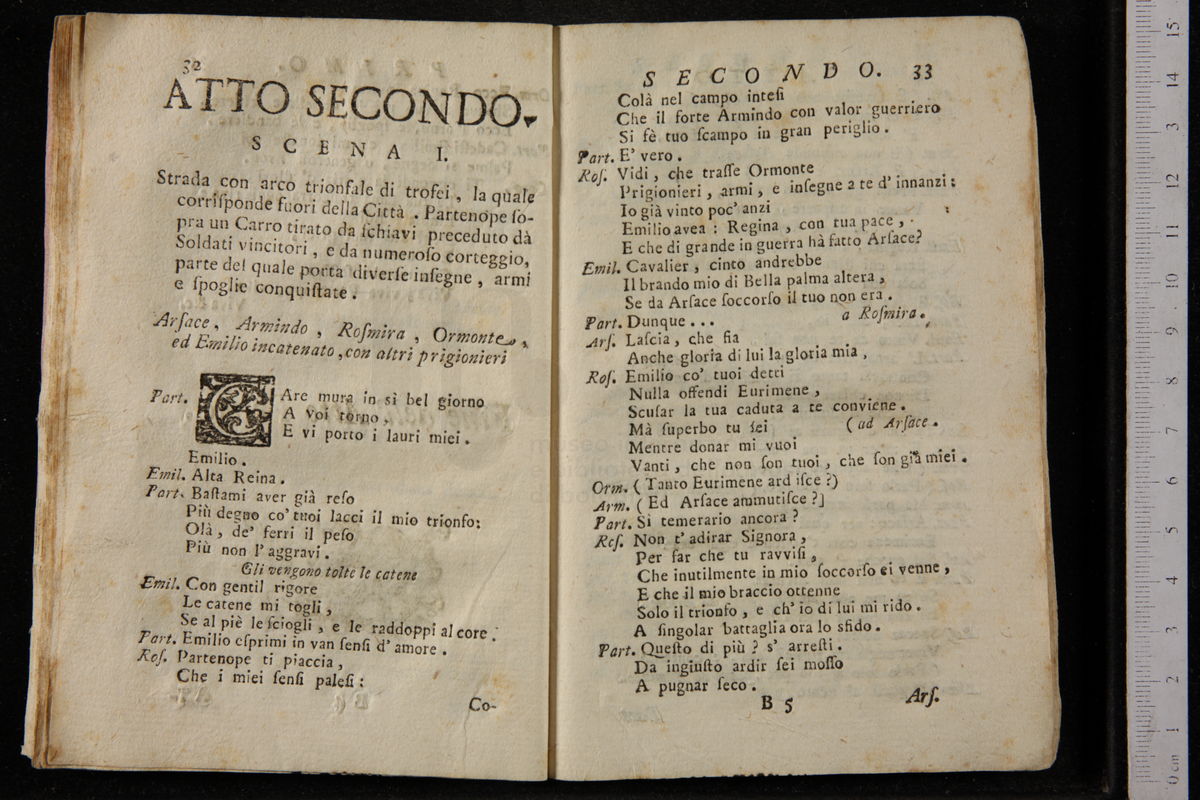 32
ATTO SECONDO.
SCENA I.
Strada con arco trionfale di trofei, la quale
corriſponde fuori della Città. Partenope ſo-
pra un Carro tirato da ſchiavi preceduto dà
Soldati vincitori, e da numeroſo corteggio,
parte del quale porta diverſe inſegne, armi
e ſpoglie conquiſtate.
Arſace, Armindo, Roſmira, Ormonte,
ed Emilio incatenato, con altri prigionieri
Part. CAre mura in sì bel giorno
A Voi torno,
E vi porto i lauri miei.
Emilio.
Emil. Alta Reina.
Part. Baſtami aver già reſo
Più degno co' tuoi lacci il mio trionfo:
Olà, de' ferri il peſo
Più non l'aggravi.
Gli vengono tolte le catene
Emil. Con gentil rigore
Le catene mi togli,
Se al piè le ſciogli, e le raddoppi al core.
Part. Emilio eſprimi in van ſenſi d'amore.
Roſ. Partenope ti piaccia,
Che i miei ſenſi paleſi:
Co-
SECONDO. 33
Colà nel campo inteſi
Che il forte Armindo con valor guerriero
Si fè tuo ſcampo in gran periglio.
Part. E' vero.
Roſ. Vidi, che traſſe Ormonte
Prigionieri, armi, e inſegne a te d'innanzi:
Io già vinto poc' anzi
Emilio avea: Regina, con tua pace,
E che di grande in guerra hà fatto Arſace?
Emil. Cavalier, cinto andrebbe
Il brando mio di Bella palma altera,
Se da Arſace ſoccorſo il tuo non era.
a Roſmira.
Part. Dunque...
Arſ. Laſcia, che ſia
Anche gloria di lui la gloria mia,
Roſ. Emilio co' tuoi detti
Nulla offendi Eurimene,
Scuſar la tua caduta a te conviene.
Mà ſuperbo tu ſei (ad Arſace.
Mentre donar mi vuoi
Vanti, che non ſon tuoi, che ſon già miei.
Orm. (Tanto Eurimene ardiſce?)
Arm. (Ed Arſace ammutiſce?]
Part. Si temerario ancora?
Roſ. Non t'adirar Signora,
Per far che tu ravviſi,
Che inutilmente in mio ſoccorſo ei venne,
E che il mio braccio ottenne
Solo il trionfo, e ch'io di lui mi rido.
A ſingolar battaglia ora lo sfido.
Part. Queſto di più? s'arreſti.
Da ingiuſto ardir ſei moſſo
A pugnar ſeco.
B 5
Arſ.
0 cm 1 2 3 4 5 6 7 8 9 10 11 12 13 14 15